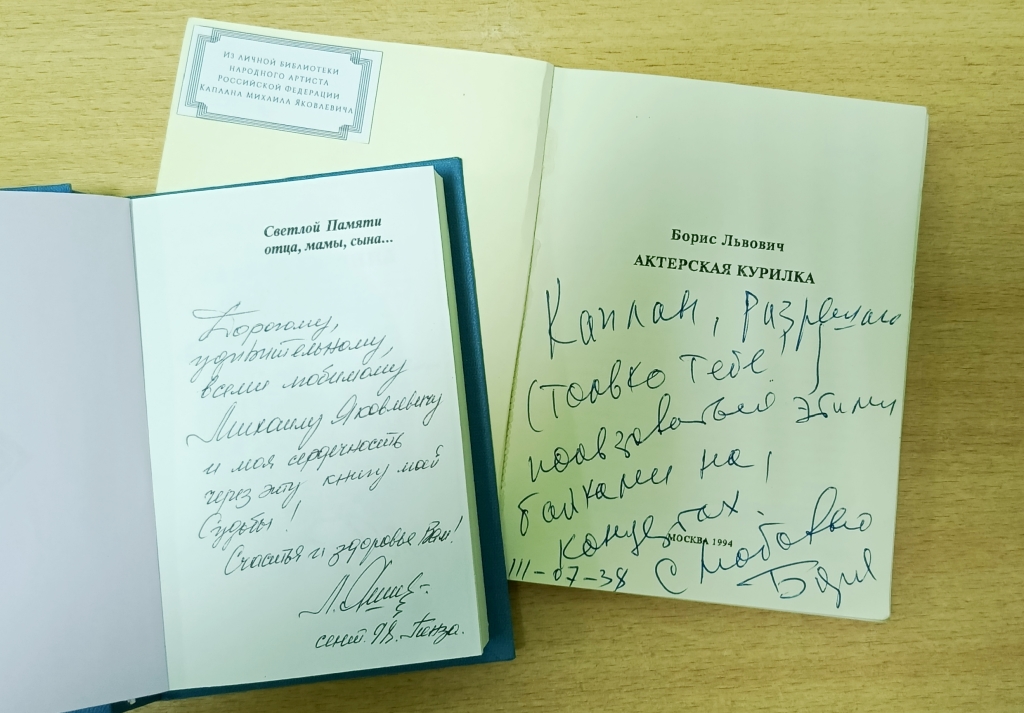 Из личной библиотеки
народного артиста
Российской Федерации
Каплана Михаила Яковлевича
Борис Львович
АКТЕРСКАЯ КУРИЛКА
Каплан, разрешаю
(только тебе)
пользоваться этими
байками на
концертах.
МОСКВА 1994
С любовью
Боря
111-07-38
Светлой Памяти
отца, мамы, сына...
Дорогому,
удивительному,
всеми любимому
Михаилу Яковлевичу
и моя сердечность
через эту книгу моей
Судьбы!
Счастья и здоровья Вам!
Л.
сент. Пенза.